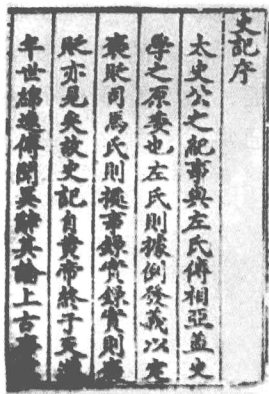 史記序
太史公之紀事與左氏傳相亞蓋史
學之原委也左氏則據例發義以寓
褒貶司馬氏則摭事錄實錄實則褒
貶亦見矣故史記自黃帝終于天漢
年世綿邈傳聞異辭其論上古